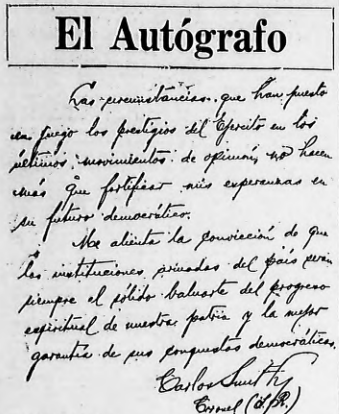 El Autógrafo
Las circunstancias que han puesto
en juego los prestigios del Ejercito en los
últimos movimientos de opinión, no hacen
mas que fortificar mis esperanzas en
su futuro democrático.
Me alienta la convicción de que
las instituciones armadas del país serán
siempre el sólido baluarte del progreso
espiritual de nuestra patria y la mejor
garantía de sus conquistas democráticas.
Carlos Smith
Coronel